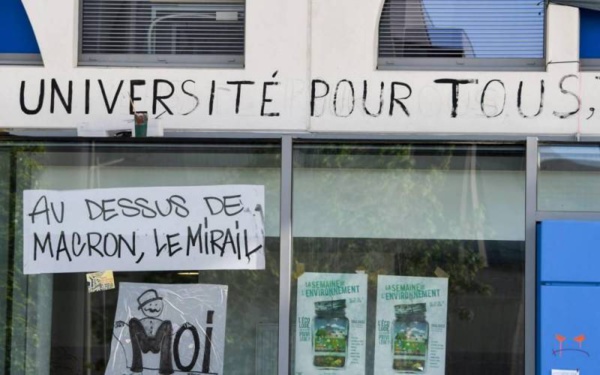 UNIVERSITÉ POUR TOUS,
AU DESSUS DE
MACRON, LE MIRAIL
MOI
LA SEMAINE DE
L'ENVIRONNEMENT
LA SEMAINE DE
L'ENVIRONNEMENT